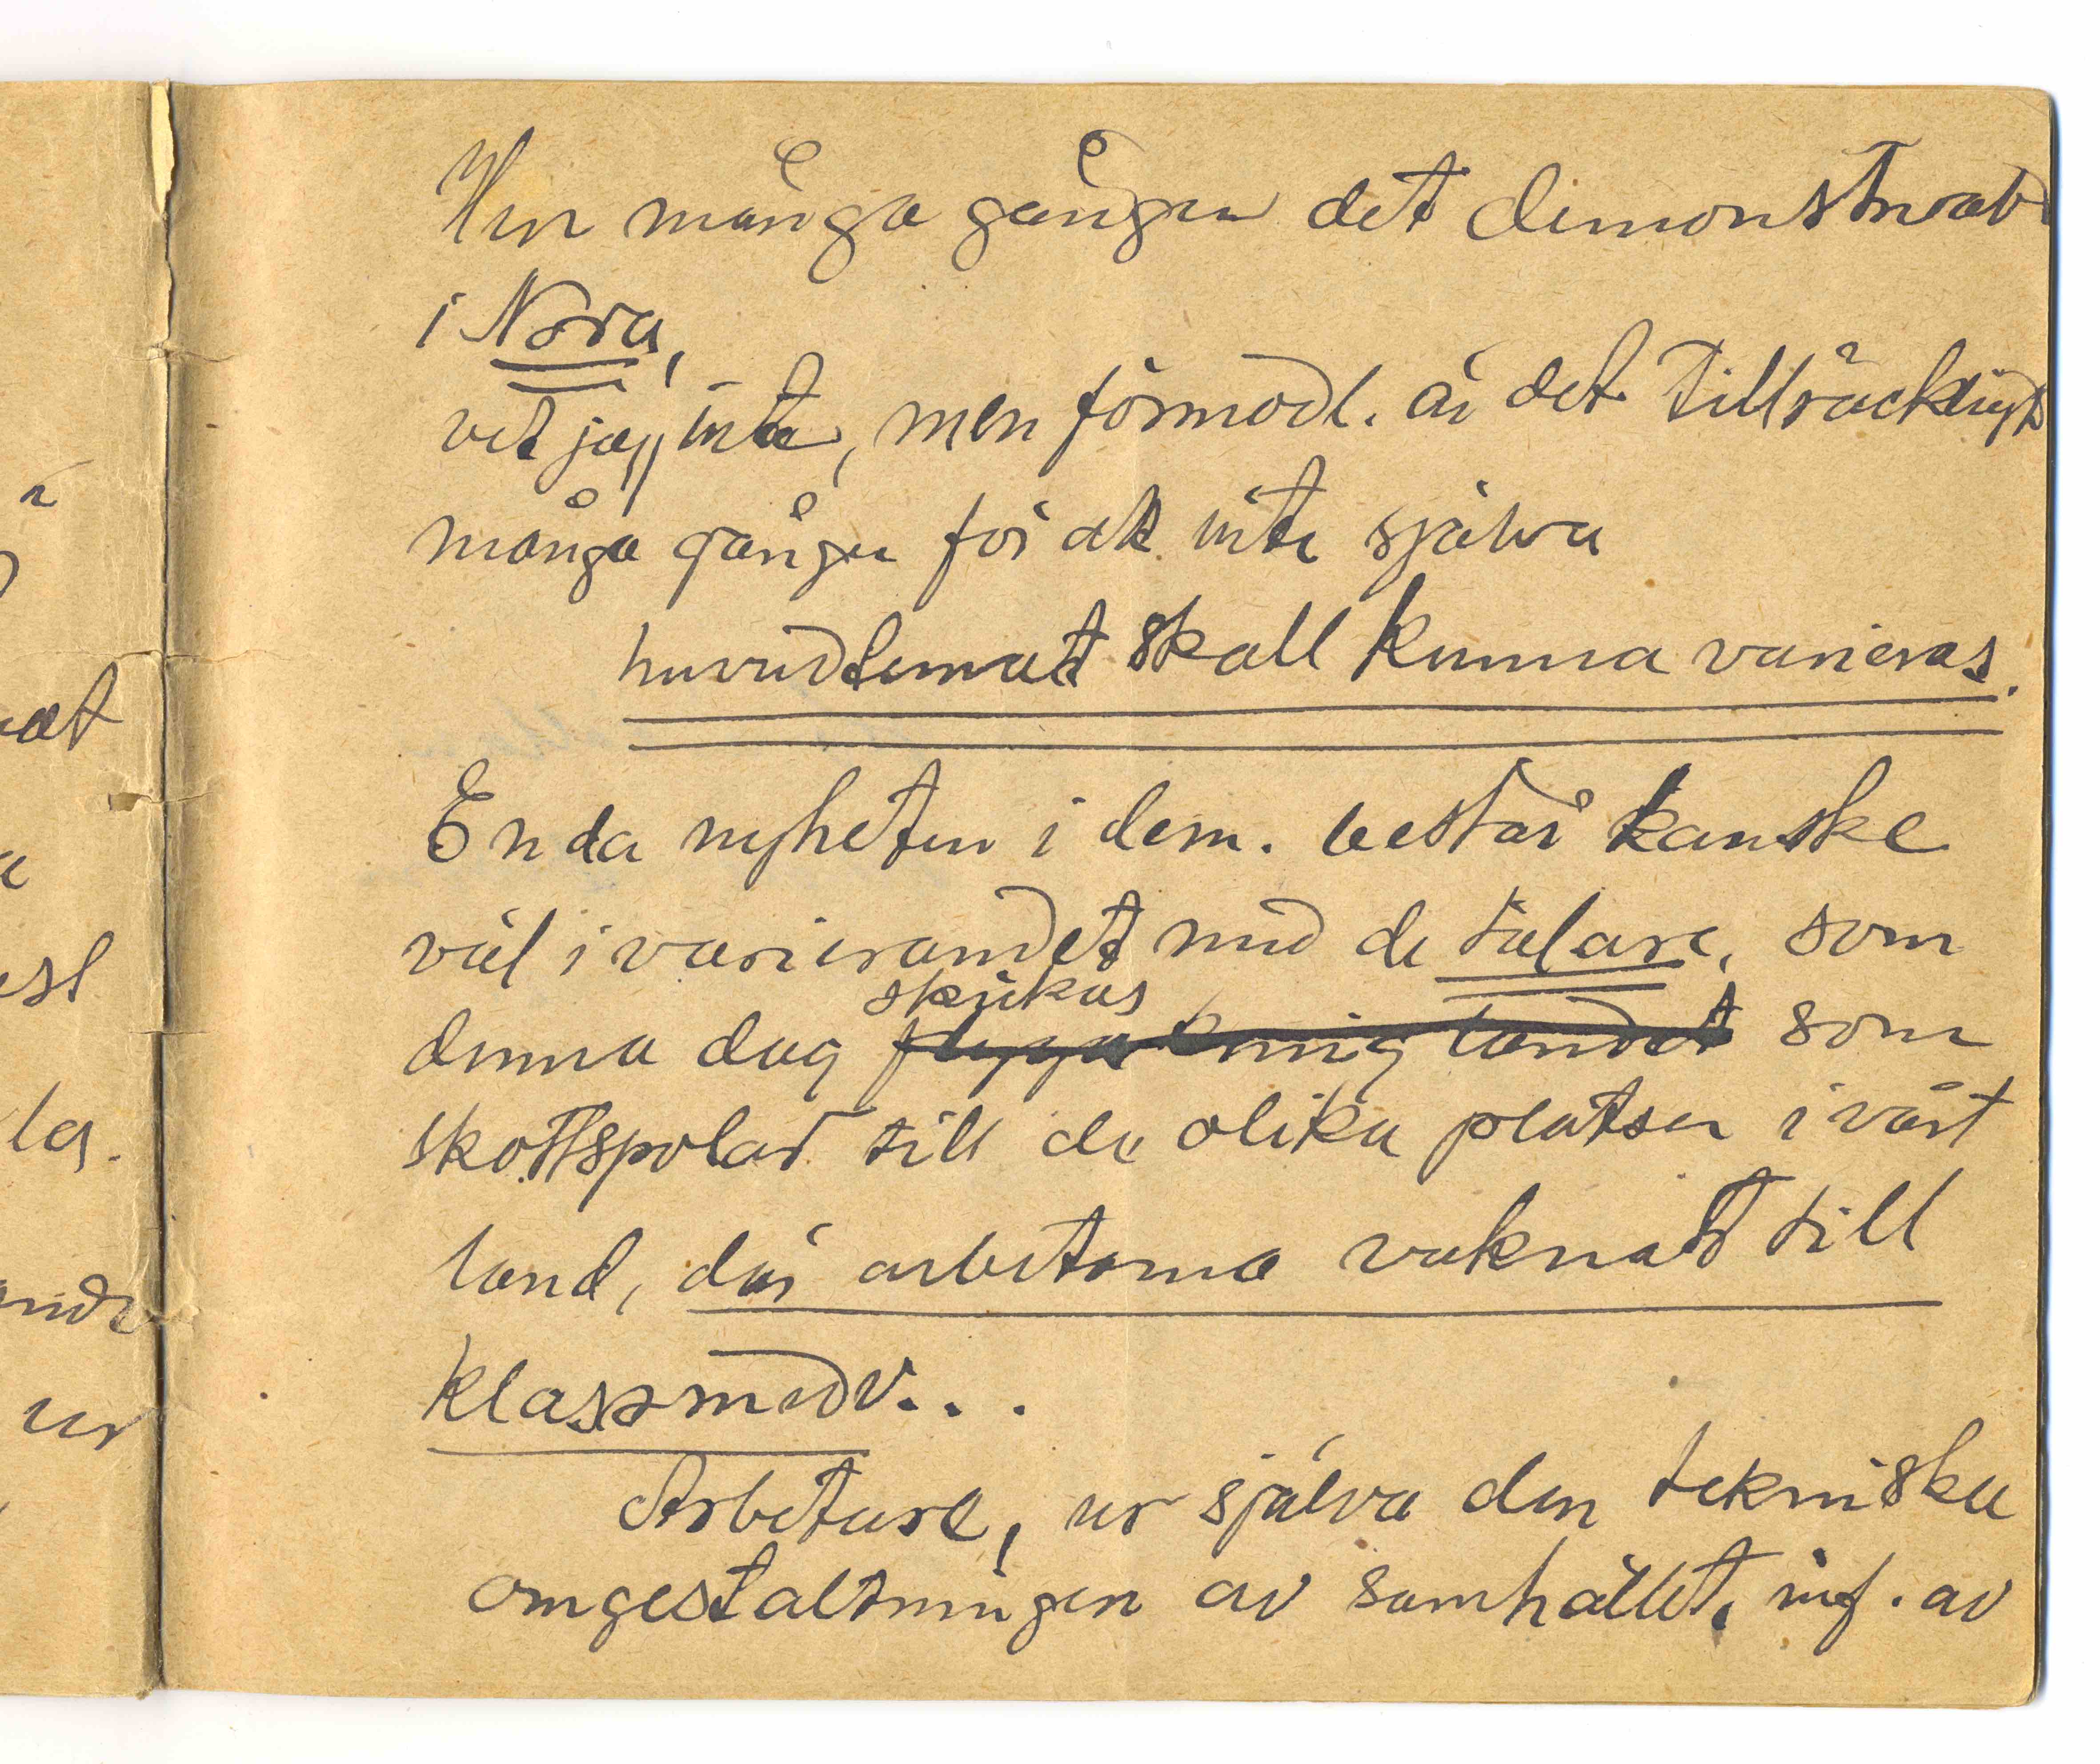 Hur många gånger det demonstrerats
i Nora,
vet jag inte, men förmodl. är det tillräckligt
många gånger för att inte själva
huvudtemat skall kunna varieras.
Enda nyheten i dem. består kanske
väl i varierandet med de talare, som
skickas
denna dag flyga kring landet som
skottspolar till de olika platser i vårt
land, där arbetarna vaknat till
klassmedv...
Arbetare, ur själva den tekniska
omgestaltningen av samhället, inf. av
at
est
las.
ur